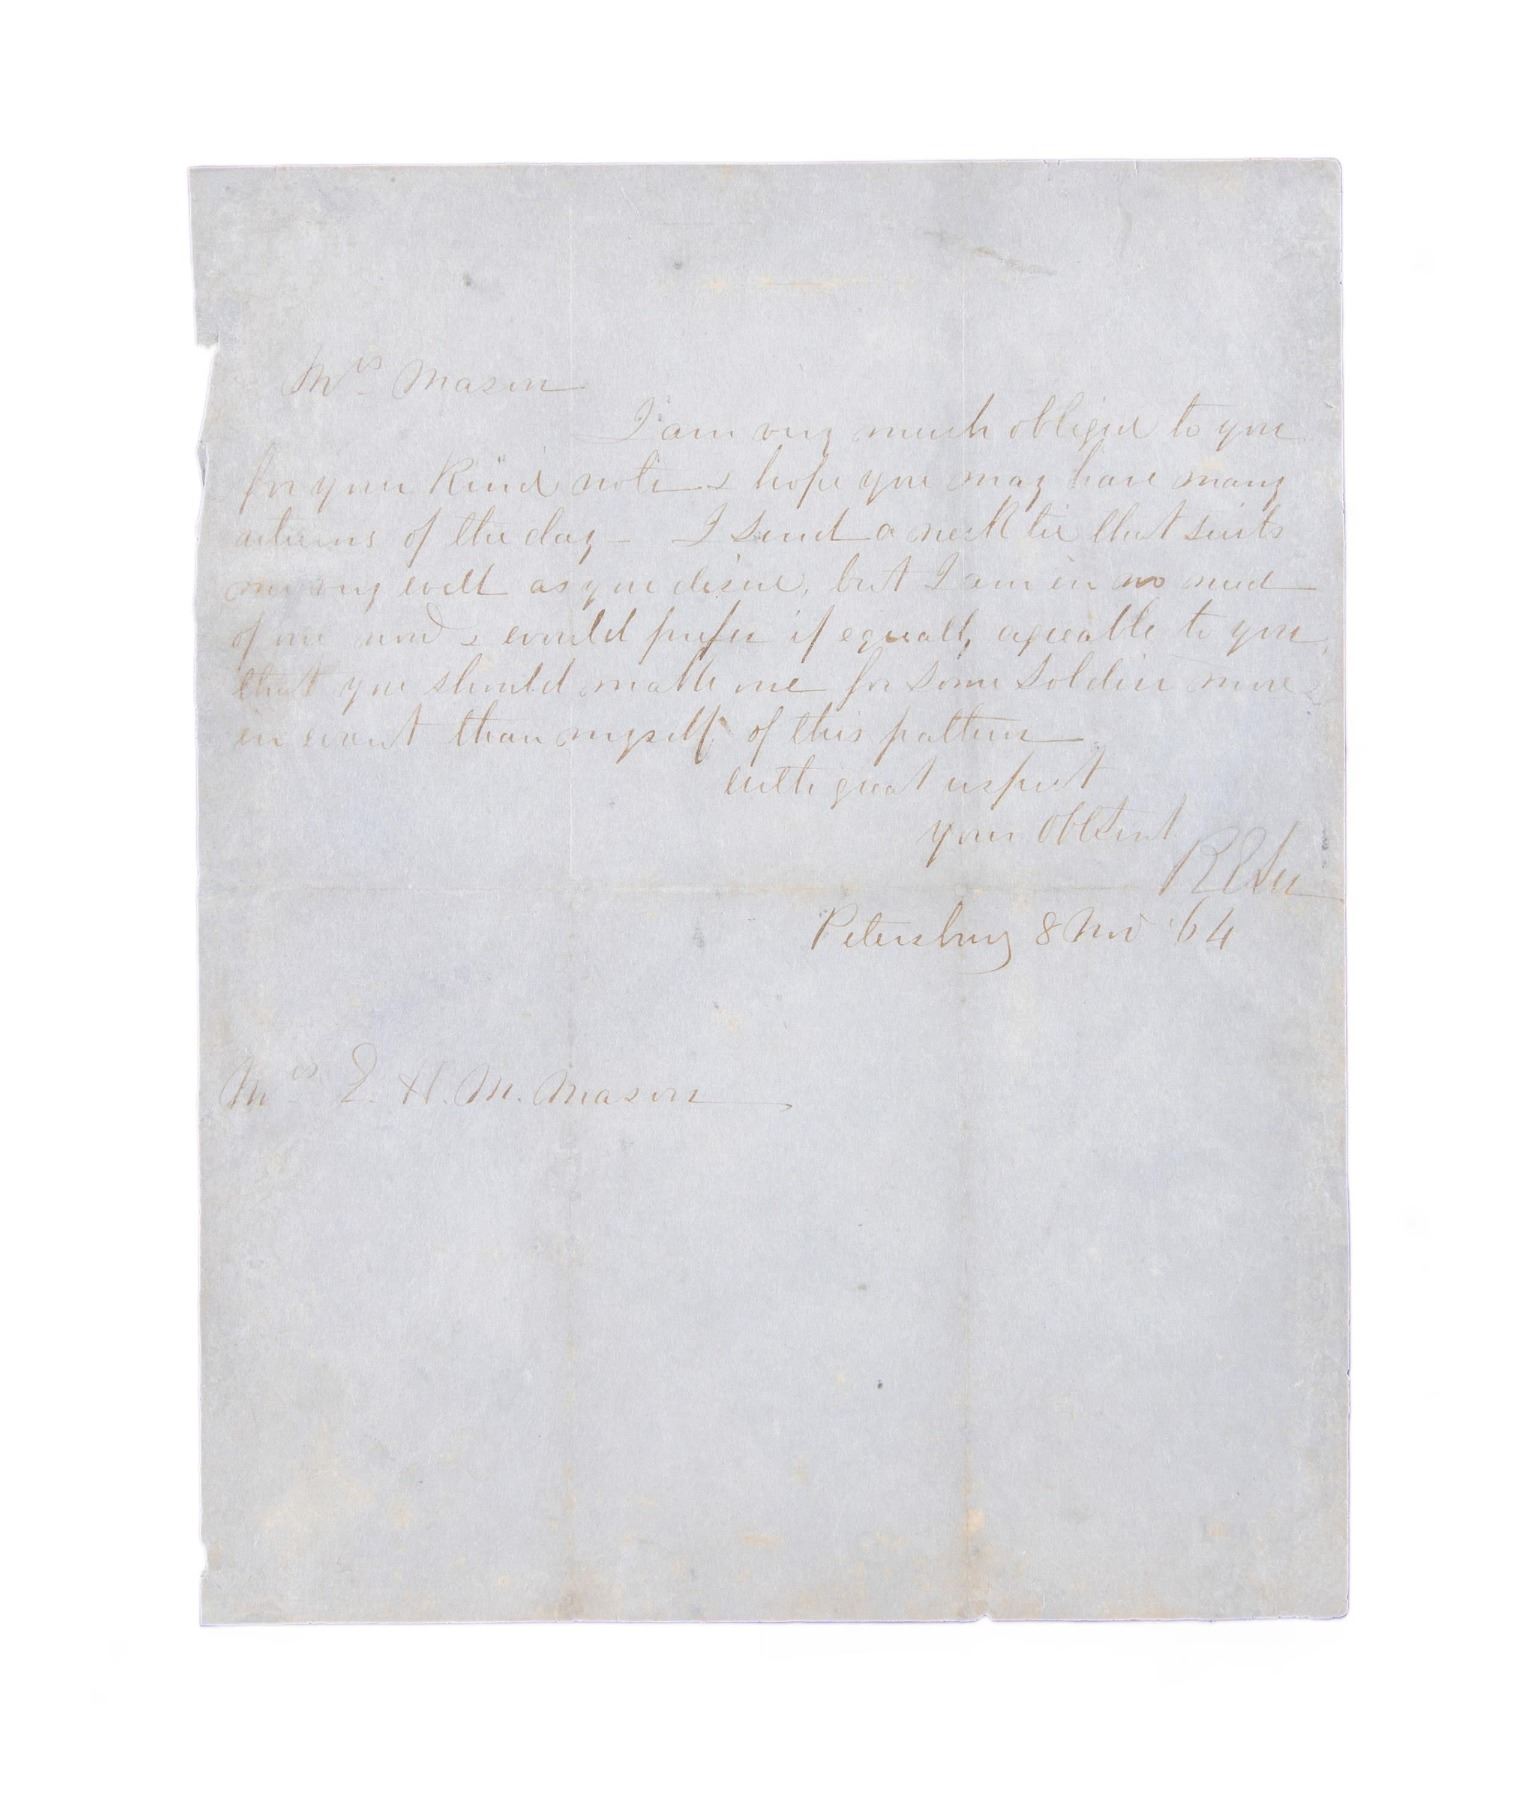 Mrs Mason
I am very much obliged to you
for your kind note & hope you may have many
returns of the day - I send a neck tie that suits
me very well as you desire, but I am in no need
of one now & would prefer if equally agreeable to you,
that you should make one for some soldier more
in want than myself of this pattern
With great respect
your obt Servt
R E Lee
Petersburg 8 Nov '64
Mrs E. H. M. Mason